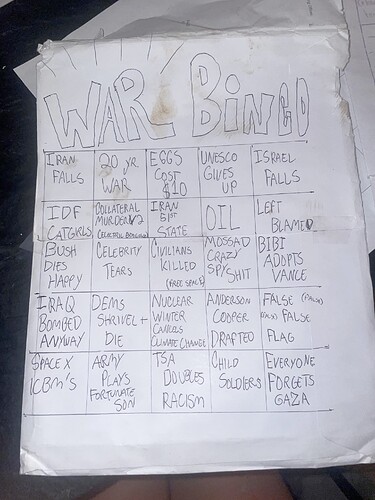 WAR BINGO
IRAN
FALLS
20 YR
WAR
EGGS
COST
$10
UNESCO
GIVES
UP
ISRAEL
FALLS
IDF
CATGIRLS
COLLATERAL
MURDER V2
(ELECTRIC BOOGALOO)
IRAN
51ST
STATE
OIL
LEFT
BLAMED
BUSH
DIES
HAPPY
CELEBRITY
TEARS
CIVILIANS
KILLED
(FREE SPACE)
MOSSAD
CRAZY
SPY
SHIT
BIBI
ADOPTS
VANCE
IRAQ
BOMBED
ANYWAY
DEMS
SHRIVEL +
DIE
NUCLEAR
WINTER
CANCELS
CLIMATE CHANGE
ANDERSON
COOPER
DRAFTED
FALSE (FALSE)
(FALSE) FALSE
FLAG
SPACE X
ICBM'S
ARMY
PLAYS
FORTUNATE
SON
TSA
DOUBLES
RACISM
CHILD
SOLDIERS
EVERYONE
FORGETS
GAZA